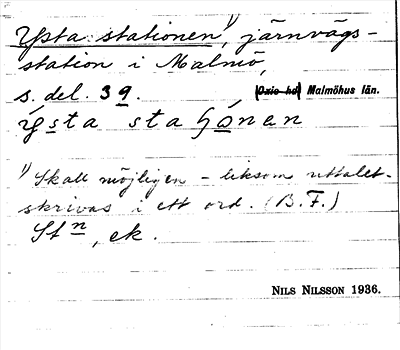 Ysta stationen¹⁾, järnvägs-
station i Malmö,
s. del. 39. (Oxie hd) Malmöhus län.
ýsta staʃɷ́nen
¹⁾ Skall möjligen - liksom uttalet -
skrivas i ett ord. (B.F.)
Stn, ek.
NILS NILSSON 1936.